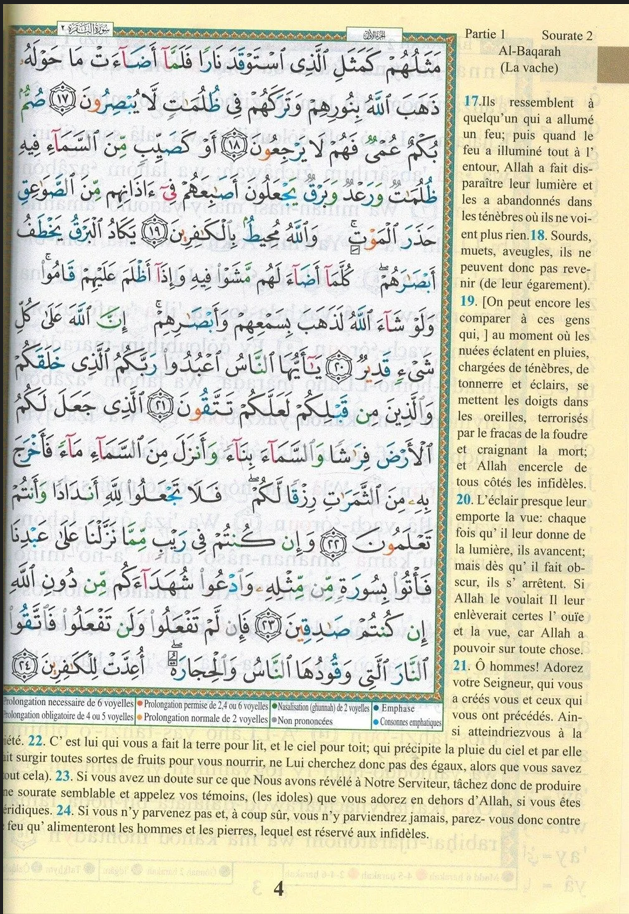 سورة البقرة ٢
الجزء الأول
Partie 1 Sourate 2
Al-Baqarah
(La vache)
مَثَلُهُمْ كَمَثَلِ ٱلَّذِى ٱسْتَوْقَدَ نَارًا فَلَمَّآ أَضَآءَتْ مَا حَوْلَهُۥ
ذَهَبَ ٱللَّهُ بِنُورِهِمْ وَتَرَكَهُمْ فِى ظُلُمَٰتٍ لَّا يُبْصِرُونَ ١٧ صُمٌّۢ
بُكْمٌ عُمْىٌ فَهُمْ لَا يَرْجِعُونَ ١٨ أَوْ كَصَيِّبٍ مِّنَ ٱلسَّمَآءِ فِيهِ
ظُلُمَٰتٌ وَرَعْدٌ وَبَرْقٌ يَجْعَلُونَ أَصَٰبِعَهُمْ فِىٓ ءَاذَانِهِم مِّنَ ٱلصَّوَٰعِقِ
حَذَرَ ٱلْمَوْتِ ۚ وَٱللَّهُ مُحِيطٌۢ بِٱلْكَٰفِرِينَ ١٩ يَكَادُ ٱلْبَرْقُ يَخْطَفُ
أَبْصَٰرَهُمْ ۖ كُلَّمَآ أَضَآءَ لَهُم مَّشَوْا۟ فِيهِ وَإِذَآ أَظْلَمَ عَلَيْهِمْ قَامُوا۟ ۚ
وَلَوْ شَآءَ ٱللَّهُ لَذَهَبَ بِسَمْعِهِمْ وَأَبْصَٰرِهِمْ ۚ إِنَّ ٱللَّهَ عَلَىٰ كُلِّ
شَىْءٍ قَدِيرٌ ٢٠ يَٰٓأَيُّهَا ٱلنَّاسُ ٱعْبُدُوا۟ رَبَّكُمُ ٱلَّذِى خَلَقَكُمْ
وَٱلَّذِينَ مِن قَبْلِكُمْ لَعَلَّكُمْ تَتَّقُونَ ٢١ ٱلَّذِى جَعَلَ لَكُمُ
ٱلْأَرْضَ فِرَٰشًا وَٱلسَّمَآءَ بِنَآءً وَأَنزَلَ مِنَ ٱلسَّمَآءِ مَآءً فَأَخْرَجَ
بِهِۦ مِنَ ٱلثَّمَرَٰتِ رِزْقًا لَّكُمْ ۖ فَلَا تَجْعَلُوا۟ لِلَّهِ أَندَادًا وَأَنتُمْ
تَعْلَمُونَ ٢٢ وَإِن كُنتُمْ فِى رَيْبٍ مِّمَّا نَزَّلْنَا عَلَىٰ عَبْدِنَا
فَأْتُوا۟ بِسُورَةٍ مِّن مِّثْلِهِۦ وَٱدْعُوا۟ شُهَدَآءَكُم مِّن دُونِ ٱللَّهِ
إِن كُنتُمْ صَٰدِقِينَ ٢٣ فَإِن لَّمْ تَفْعَلُوا۟ وَلَن تَفْعَلُوا۟ فَٱتَّقُوا۟
ٱلنَّارَ ٱلَّتِى وَقُودُهَا ٱلنَّاسُ وَٱلْحِجَارَةُ ۖ أُعِدَّتْ لِلْكَٰفِرِينَ ٢٤
Prolongation necessaire de 6 voyelles Prolongation permise de 2,4 ou 6 voyelles Nasalisation (ghunnah) de 2 voyelles Emphase
Prolongation obligatoire de 4 ou 5 voyelles Prolongation normale de 2 voyelles Non prononcées Consonnes emphatiques
17.Ils ressemblent à
quelqu'un qui a allumé
un feu; puis quand le
feu a illuminé tout à l'
entour, Allah a fait dis-
paraître leur lumière et
les a abandonnés dans
les ténèbres où ils ne voi-
ent plus rien.18. Sourds,
muets, aveugles, ils ne
peuvent donc pas reve-
nir (de leur égarement).
19. [On peut encore les
comparer à ces gens
qui, ] au moment où les
nuées éclatent en pluies,
chargées de ténèbres, de
tonnerre et éclairs, se
mettent les doigts dans
les oreilles, terrorisés
par le fracas de la foudre
et craignant la mort;
et Allah encercle de
tous côtés les infidèles.
20. L'éclair presque leur
emporte la vue: chaque
fois qu' il leur donne de
la lumière, ils avancent;
mais dès qu' il fait ob-
scur, ils s' arrêtent. Si
Allah le voulait Il leur
enlèverait certes l 'ouïe
et la vue, car Allah a
pouvoir sur toute chose.
21. Ô hommes! Adorez
votre Seigneur, qui vous
a créés vous et ceux qui
vous ont précédés. Ain-
si atteindriezvous à la
iété. 22. C' est lui qui vous a fait la terre pour lit, et le ciel pour toit; qui précipite la pluie du ciel et par elle
ait surgir toutes sortes de fruits pour vous nourrir, ne Lui cherchez donc pas des égaux, alors que vous savez
out cela). 23. Si vous avez un doute sur ce que Nous avons révélé à Notre Serviteur, tâchez donc de produire
ne sourate semblable et appelez vos témoins, (les idoles) que vous adorez en dehors d'Allah, si vous êtes
éridiques. 24. Si vous n'y parvenez pas et, à coup sûr, vous n'y parviendrez jamais, parez- vous donc contre
feu qu' alimenteront les hommes et les pierres, lequel est réservé aux infidèles.
4